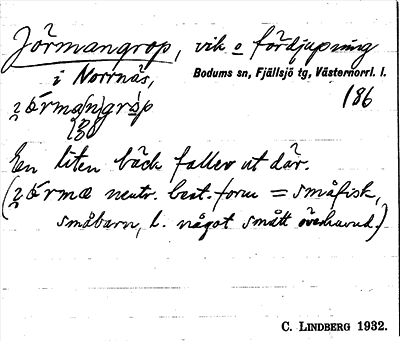 Jörmangrop, vik o fördjupning
i Norrnäs, Bodums sn, Fjällsjö tg, Västernorrl. l.
186
En liten bäck faller ut där.
neutr. best. form = småfisk,
småbarn, l. något smått överhuvud.)
C. LINDBERG 1932.